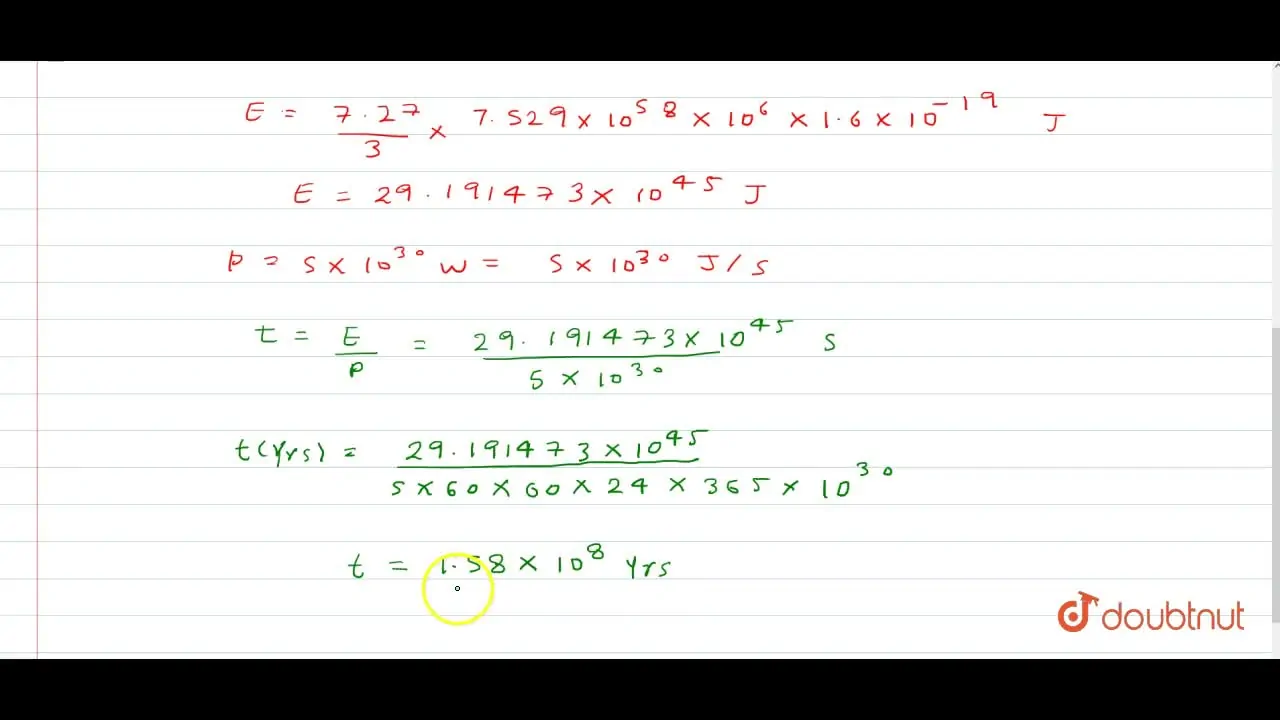 E = 7.27/3 × 7.529 × 10^58 × 10^6 × 1.6 × 10^-19 J
E = 29.191473 × 10^45 J
P = 5 × 10^30 W = 5 × 10^30 J/s
t = E/P = 29.191473 × 10^45 / 5 × 10^30 s
t(Yrs) = 29.191473 × 10^45 / 5 × 60 × 60 × 24 × 365 × 10^30
t = 1.58 × 10^8 Yrs
doubtnut